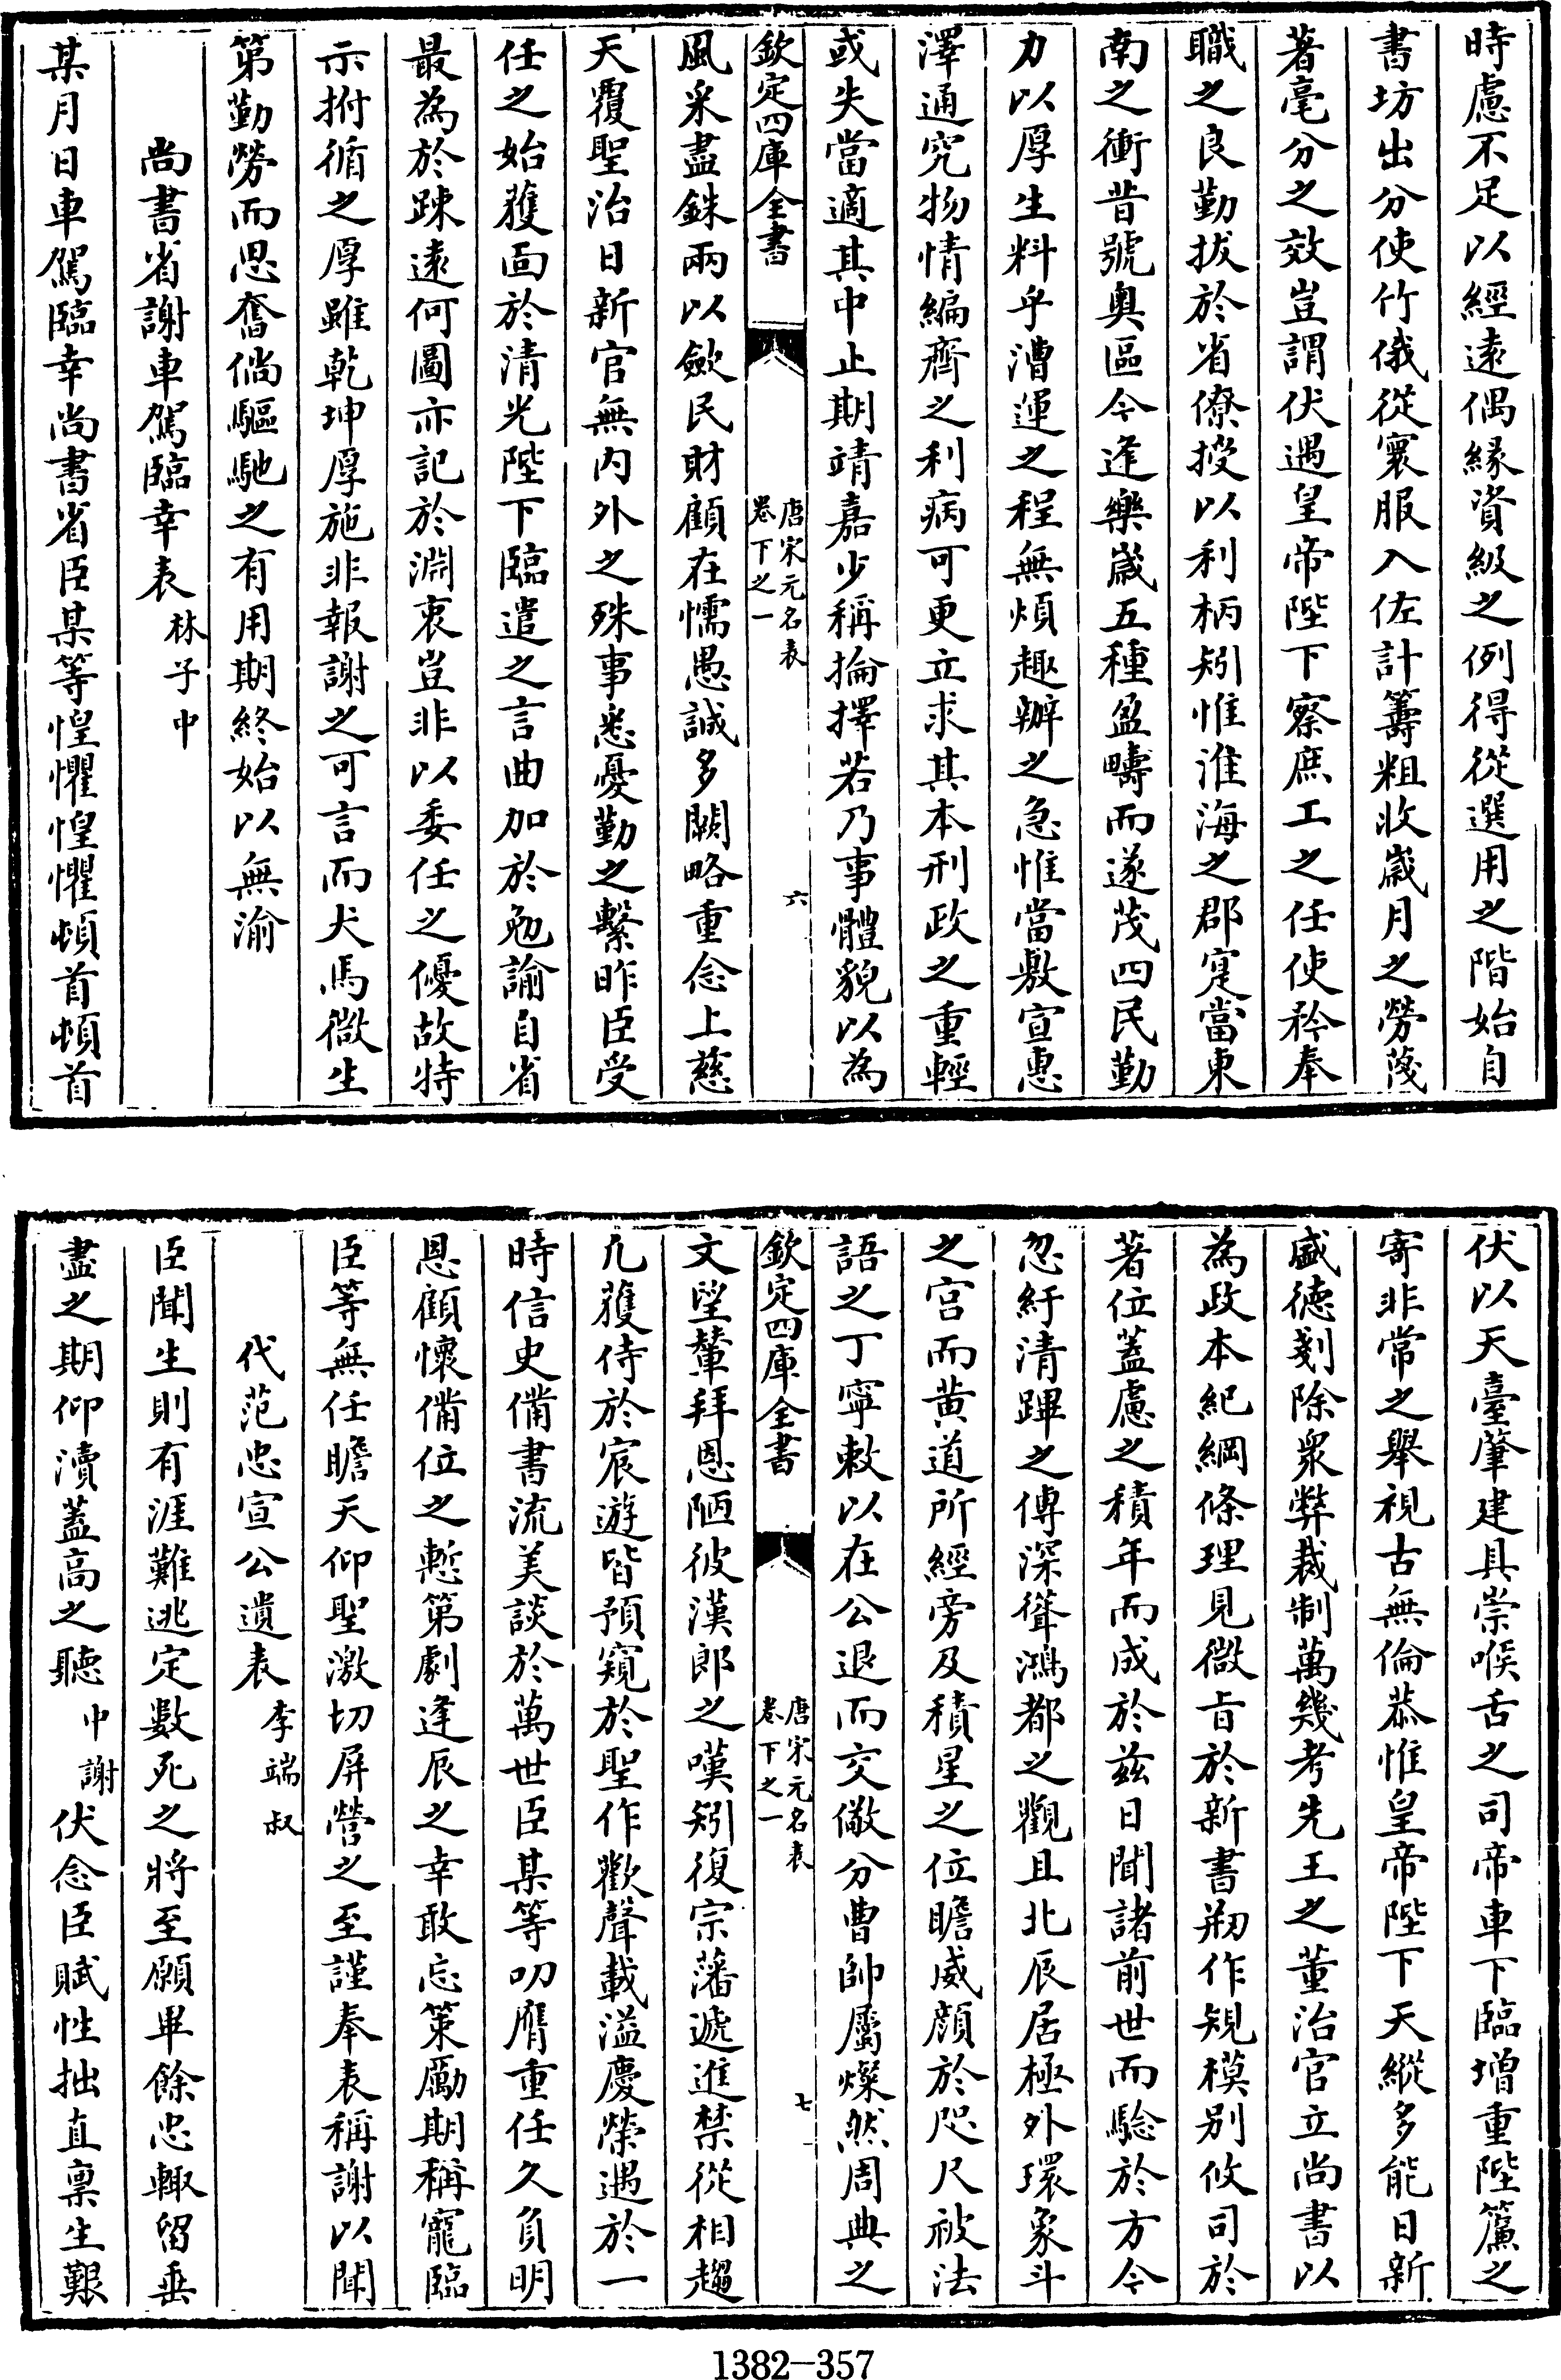 時慮不足以經遠偶緣資級之例得從選用之階始自
書坊出分使竹俄從寰服入佐計籌粗收歲月之勞蔑
著毫分之效豈謂伏遇皇帝陛下察庶工之任使矜奉
職之良勤拔於省僚授以利柄矧惟淮海之郡寔當東
南之衝昔號奥區今逢樂歲五種盈疇而遂茂四民勤
力以厚生料乎漕運之程無煩趣辦之急惟當敷宣惠
澤通究物情編齊之利病可更立求其本刑政之重輕
或失當適其中止期靖嘉少稱掄擇若乃事體貌以為
欽定四庫全書
唐宋元名表
卷下之一
六
風采盡銖兩以斂民財顧在懦愚誠多闕略重念上慈
天覆聖治日新官無内外之殊事悉憂勤之繫昨臣受
任之始獲面於清光陛下臨遣之言曲加於勉諭自省
最為於踈遠何圖亦記於淵衷豈非以委任之優故特
示拊循之厚雖乾坤厚施非報謝之可言而犬馬微生
第勤勞而思奮倘驅馳之有用期終始以無渝
尚書省謝車駕臨幸表 林子中
某月日車駕臨幸尚書省臣某等惶懼惶懼頓首頓首
伏以天臺肇建具崇喉舌之司帝車下臨增重陛簾之
寄非常之舉視古無倫恭惟皇帝陛下天縱多能日新
盛德剗除衆弊裁制萬幾考先王之董治官立尚書以
為政本紀綱條理見微旨於新書刱作規模别攸司於
著位蓋慮之積年而成於兹日聞諸前世而驗於方今
忽紆清蹕之傳深聳鴻都之觀且北辰居極外環象斗
之宫而黄道所經旁及積星之位瞻威顔於咫尺被法
語之丁寧敕以在公退而交儆分曹帥屬燦然周典之
欽定四庫全書
唐宋元名表
卷下之一
七
文望輦拜恩陋彼漢郎之嘆矧復宗藩遞進禁從相趨
凢獲侍於宸遊皆預窺於聖作歡聲載溢慶榮遇於一
時信史備書流美談於萬世臣某等叨膺重任久負明
恩顧懷備位之慙第劇逢辰之幸敢忘策勵期稱寵臨
臣等無任瞻天仰聖激切屏營之至謹奉表稱謝以聞
代范忠宣公遺表 李端叔
臣聞生則有涯難逃定數死之將至願畢餘忠輙留垂
盡之期仰瀆蓋高之聽 中謝 伏念臣賦性拙直稟生艱
1382—357